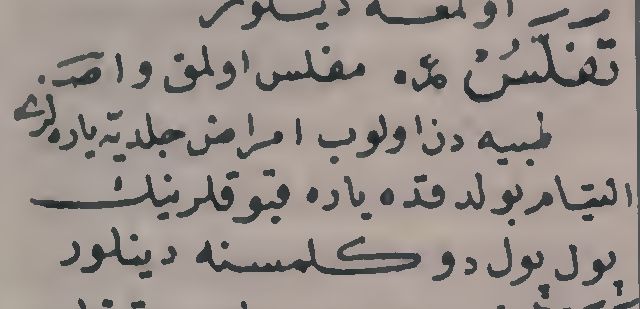 اولمغه دینلور
تَفَلُّسْ مد. مفلس اولمق واصـ
طبیه دن اولوب امراض جلدیه یاره لری
التیام بولدقده یاره قبوقلرینك
پول پول دوكلمسنه دینلور